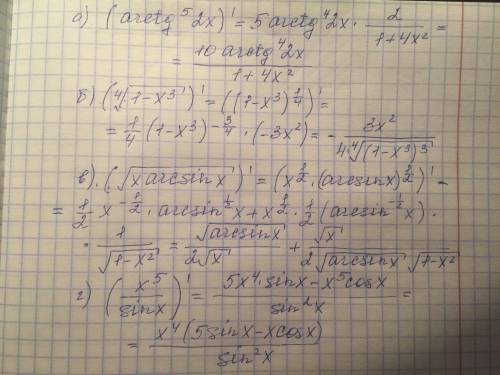 а) (arctg⁵2x)' = 5 arctg⁴2x · 2/(1+4x²) =
= 10 arctg⁴2x/(1+4x²)
б) (⁴√(1-x³))' = ((1-x³)^(1/4))' =
= 1/4 (1-x³)^(-3/4) · (-3x²) = - 3x²/(4·⁴√((1-x³)³))
в). (√(x arcsinx))' = (x^(1/2) · (arcsinx)^(1/2))' =
= 1/2 x^(-1/2) · arcsin^(1/2)x + x^(1/2) · 1/2 (arcsin^(-1/2)x) ·
· 1/√(1-x²) = √(arcsinx)/(2√x) + √x/(2√(arcsinx) √(1-x²))
г) (x⁵/sinx)' = (5x⁴·sinx - x⁵cosx)/sin²x =
= x⁴(5sinx - xcosx)/sin²x